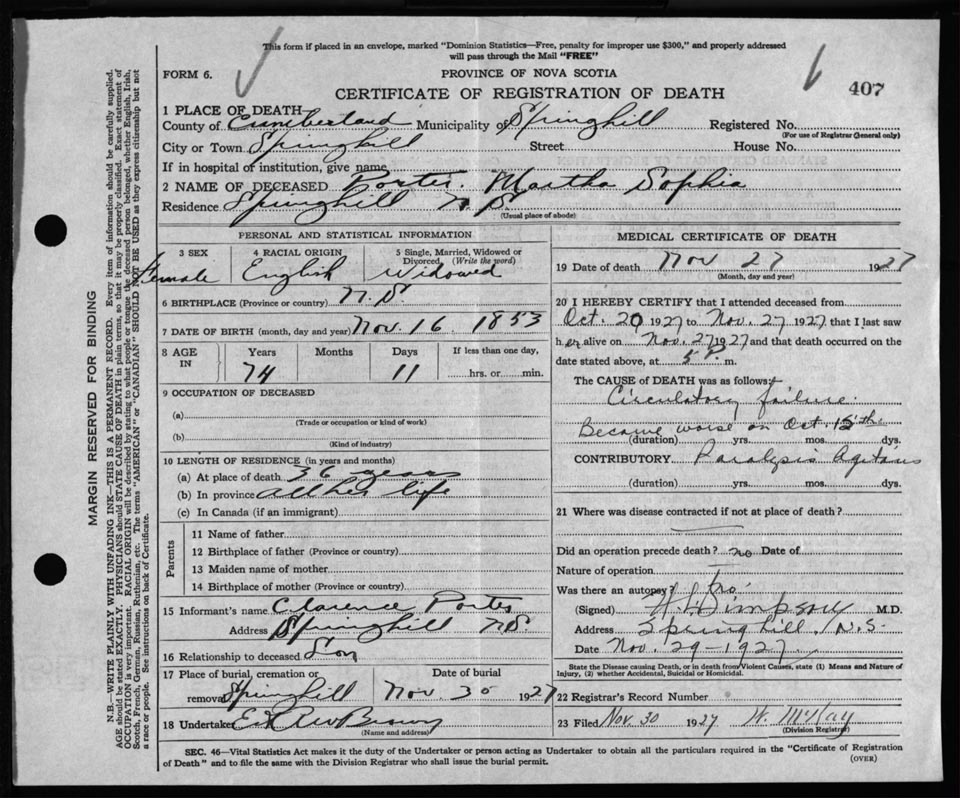 This form if placed in an envelope, marked "Dominion Statistics—Free, penalty for improper use $300," and properly addressed
will pass through the Mail "FREE"
FORM 6.
PROVINCE OF NOVA SCOTIA
CERTIFICATE OF REGISTRATION OF DEATH
407
1 PLACE OF DEATH—
County of Cumberland Municipality of Springhill Registered No.
(For use of Registrar General only)
City or Town Springhill Street House No.
If in hospital or institution, give name
2 NAME OF DECEASED Porter Martha Sophia
Residence Springhill N.S.
(Usual place of abode)
PERSONAL AND STATISTICAL INFORMATION
3 SEX 4 RACIAL ORIGIN 5 Single, Married, Widowed or
Divorced, (Write the word)
Female English Widowed
6 BIRTHPLACE (Province or country) N.S.
7 DATE OF BIRTH (month, day and year) Nov. 16 1853
8 AGE IN Years Months Days If less than one day,
74 11 hrs. or min.
9 OCCUPATION OF DECEASED
(a)
(Trade or occupation or kind of work)
(b)
(Kind of industry)
10 LENGTH OF RESIDENCE (in years and months)
(a) At place of death 36 years
(b) In province all her life
(c) In Canada (if an immigrant)
Parents
11 Name of father
12 Birthplace of father (Province or country)
13 Maiden name of mother
14 Birthplace of mother (Province or country)
15 Informant's name Clarence Porter
Address Springhill N.S.
16 Relationship to deceased Son
17 Place of burial, cremation or Date of burial
removal Springhill Nov 30 1927
18 Undertaker Brown
(Name and address)
MEDICAL CERTIFICATE OF DEATH
19 Date of death Nov 27 1927
(Month, day and year)
20 I HEREBY CERTIFY that I attended deceased from
Oct. 20 1927 to Nov. 27 1927 that I last saw
her alive on Nov. 27 1927 and that death occurred on the
date stated above, at 5 P. m.
The CAUSE of DEATH was as follows:
Circulatory failure.
Became worse on Oct. 15th
(duration) yrs. mos. dys.
CONTRIBUTORY Paralysis Agitans
(duration) yrs. mos. dys.
21 Where was disease contracted if not at place of death?
Did an operation precede death? no Date of
Nature of operation
Was there an autopsy? no
(Signed) Simpson M.D.
Address Springhill, N.S.
Date Nov. 29-1927
State the Disease causing Death, or in death from Violent Causes, state (1) Means and Nature of
Injury, (2) whether Accidental, Suicidal or Homicidal.
22 Registrar's Record Number
23 Filed Nov. 30 1927 W. McKay
(Division Registrar)
SEC. 46—Vital Statistics Act makes it the duty of the Undertaker or person acting as Undertaker to obtain all the particulars required in the "Certificate of Registration
of Death" and to file the same with the Division Registrar who shall issue the burial permit.
(OVER)
MARGIN RESERVED FOR BINDING
N.B.—WRITE PLAINLY WITH UNFADING INK—THIS IS A PERMANENT RECORD. Every item of information should be carefully supplied.
AGE should be stated EXACTLY. PHYSICIANS should STATE CAUSE OF DEATH in plain terms, so that it may be properly classified. Exact statement of
OCCUPATION is very important. RACIAL ORIGIN will be described by stating to what people or tongue the deceased person belonged, whether English, Irish,
Scotch, French, German, Russian, Ruthenian, etc. The terms "AMERICAN" or "CANADIAN" SHOULD NOT BE USED as they express citizenship but not
a race or people. See instructions on back of Certificate.